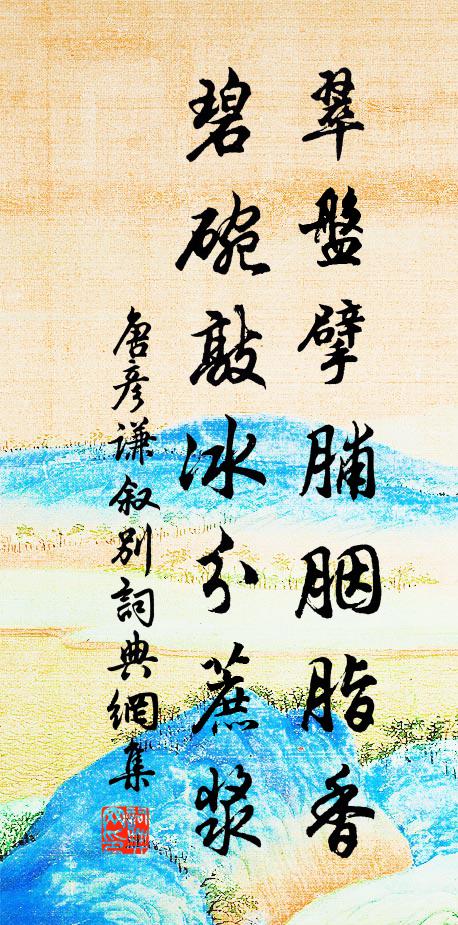 翠盤擘脯胭脂香
碧碗敲冰分蔗漿
唐彥謙叙別詞典網集